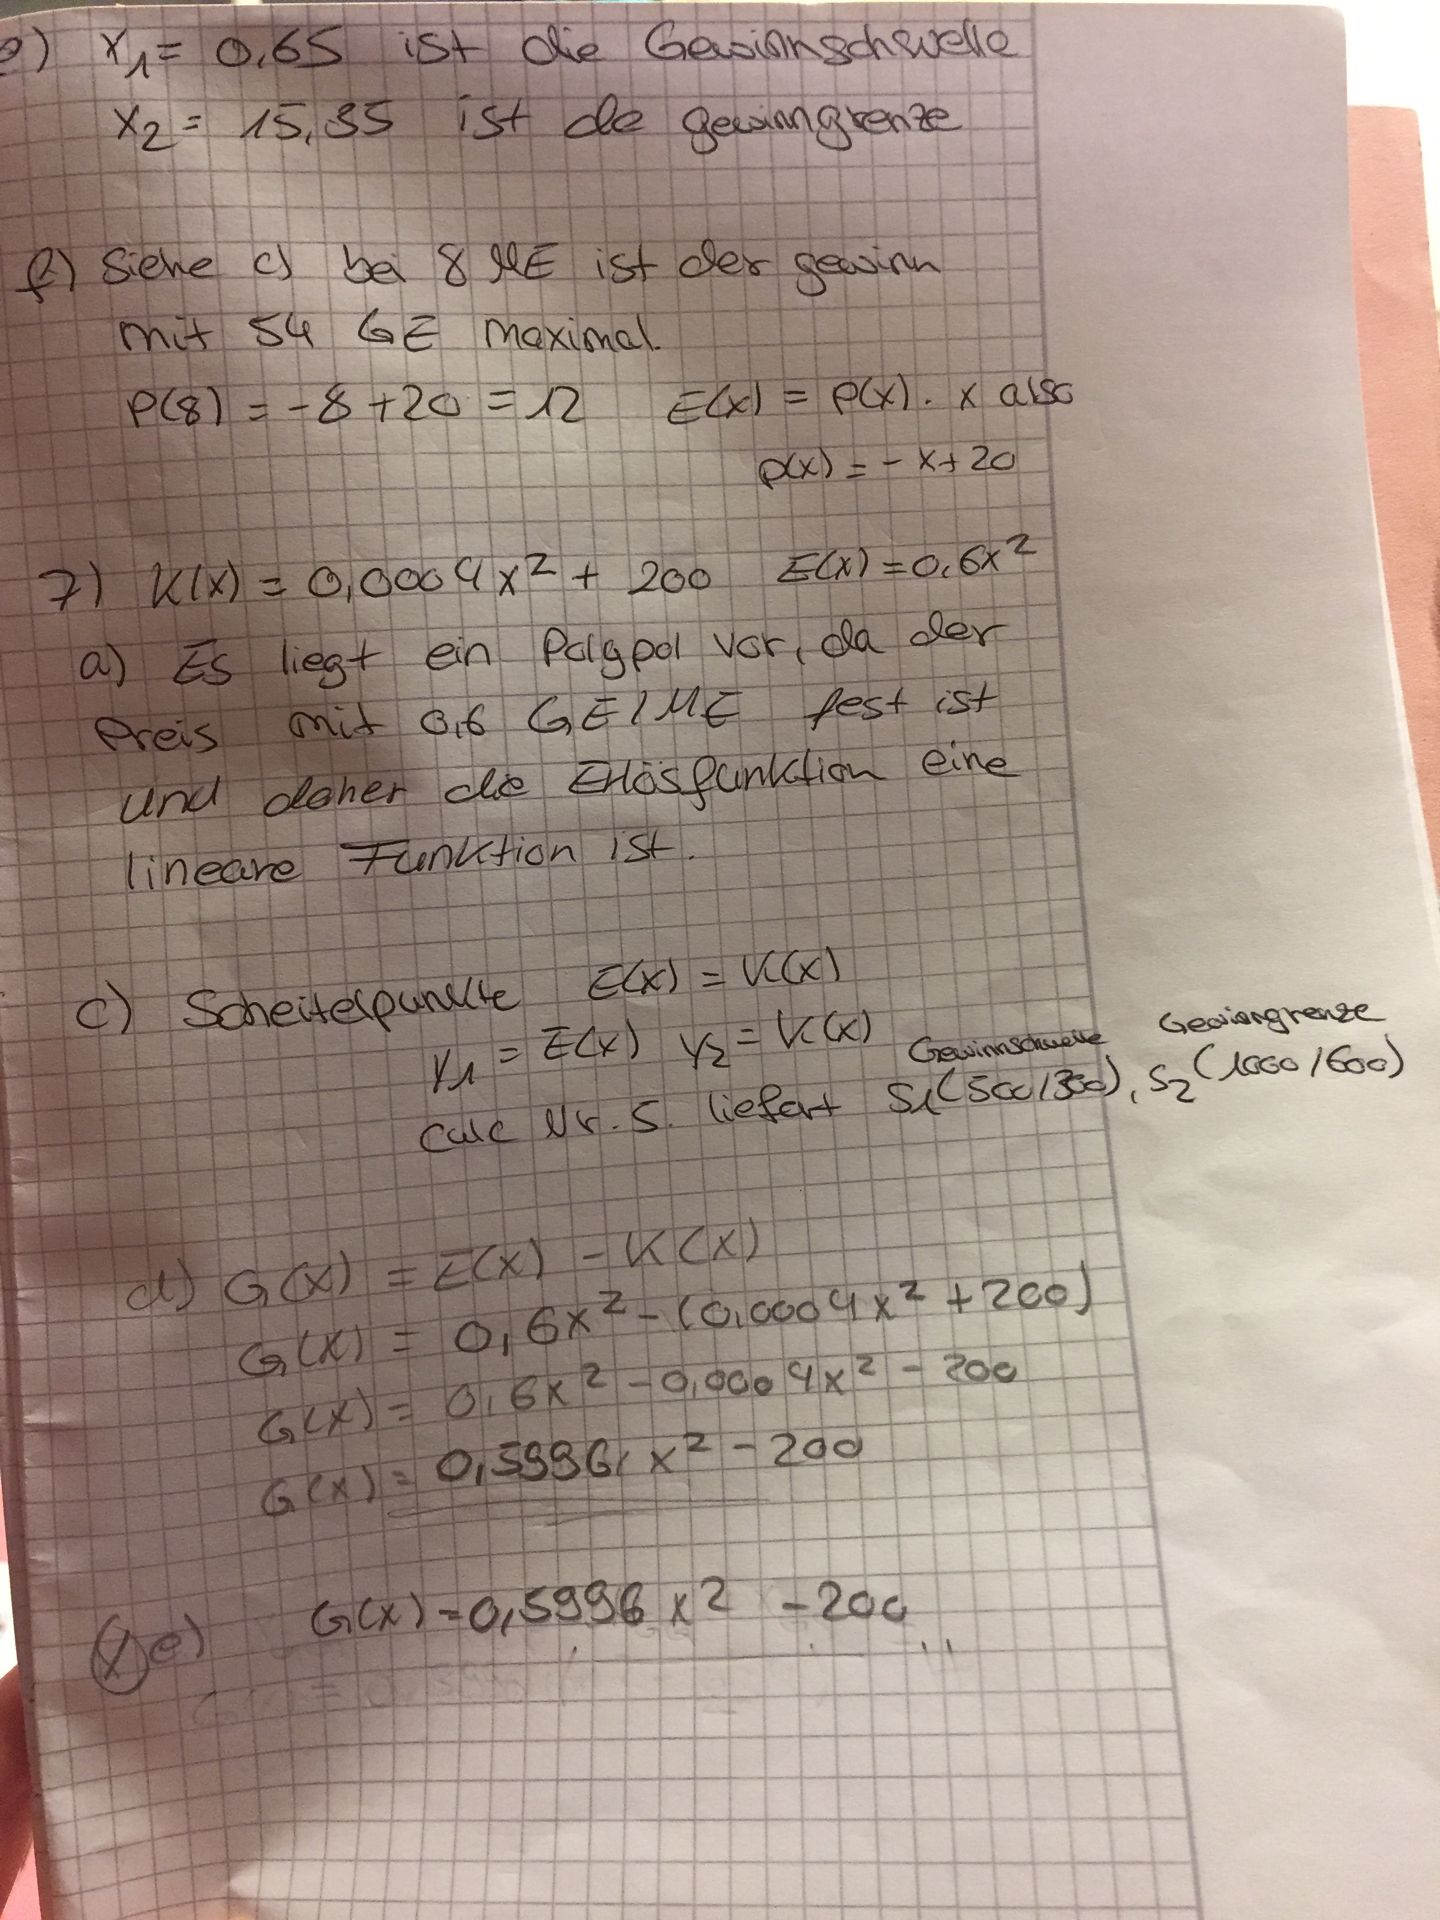 e) x₁ = 0,65 ist die Gewinnschwelle
x₂ = 15,35 ist de gewinngrenze
f) Siehe c) bei 8 ME ist der gewinn
mit 54 GE maximal.
p(8) = -8 + 20 = 12 E(x) = p(x) · x also
p(x) = -x + 20
7) K(x) = 0,0004x² + 200 E(x) = 0,6x²
a) Es liegt ein Polypol vor, da der
Preis mit 0,6 GE/ME fest ist
und daher die Erlösfunktion eine
lineare Funktion ist.
c) Scheitelpunkte E(x) = K(x)
Y₁ = E(x) Y₂ = K(x) Gewinnschwelle Gewinngrenze
Calc Nr. 5. liefert S₁(500/300), S₂(1000/600)
d) G(x) = E(x) - K(x)
G(x) = 0,6x² - (0,0004x² + 200)
G(x) = 0,6x² - 0,0004x² - 200
G(x) = 0,5996x² - 200
e) G(x) = 0,5996x² - 200